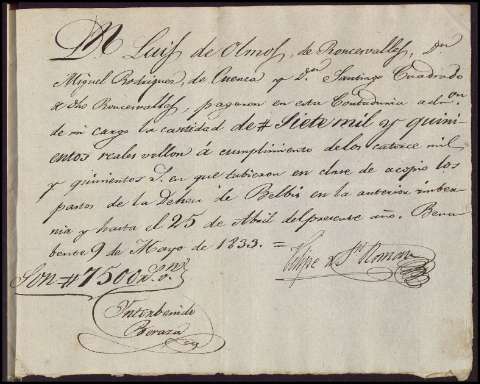 Dn. Luis de Olmos, de Roncervalles, Dn
Miguel Rodriguez, de Cuenca y Dn Santiago Cuadrado
Roncervalles, pagaron en esta Contaduria admon.
de mi cargo la cantidad de # Siete mil y quini-
entos reales vellon á cumplimiento delos catorce mil
y quinientos rs. en que tubieron en clase de acopio los
pastos de la Dehesa de Belbis en la anterior inber-
nia y hasta el 25 de Abril del presente año. Bena
bente 9 de Mayo de 1833. =
Felipe Sn Roman
Son # 7500 rs. vn.
Interbenido
Beraza